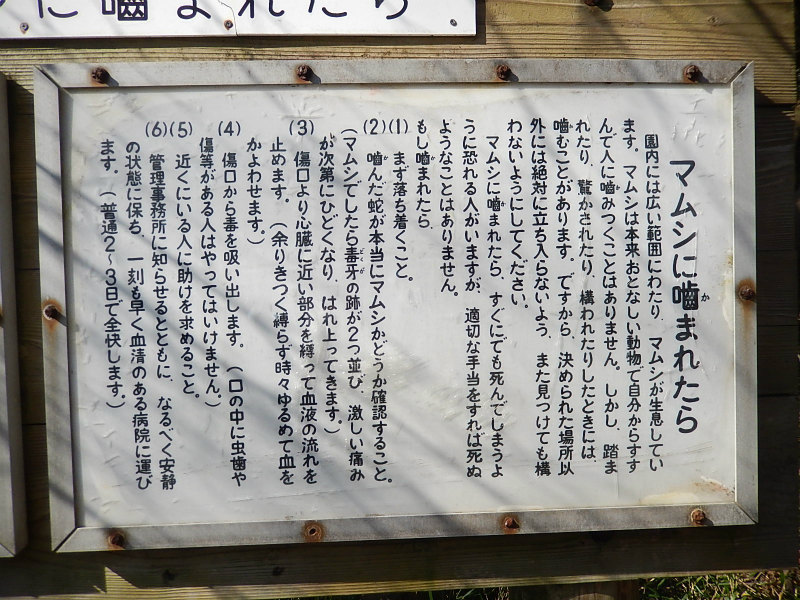 に噛まれたら
マムシに噛まれたら
園内には広い範囲にわたり、マムシが生息してい
ます。マムシは本来おとなしい動物で自分からすす
んで人に噛みつくことはありません。しかし、踏ま
れたり、驚かされたり、構われたりしたときには、
噛むことがあります。ですから、決められた場所以
外には絶対に立ち入らないよう、また見つけても構
わないようにしてください。
マムシに噛まれたら、すぐにでも死んでしまうよ
うに恐れる人がいますが、適切な手当をすれば死ぬ
ようなことはありません。
もし噛まれたら
(1) まず落ち着くこと。
(2) 噛んだ蛇が本当にマムシかどうか確認すること。
(マムシでしたら毒牙の跡が2つ並び、激しい痛み
が次第にひどくなり、はれ上ってきます。)
(3) 傷口より心臓に近い部分を縛って血液の流れを
止めます。(余りきつく縛らず時々ゆるめて血を
かよわせます。)
(4) 傷口から毒を吸い出します。(口の中に虫歯や
傷等がある人はやってはいけません。)
(5) 近くにいる人に助けを求めること。
(6) 管理事務所に知らせるとともに、なるべく安静
の状態に保ち、一刻も早く血清のある病院に運び
ます。(普通2〜3日で全快します。)